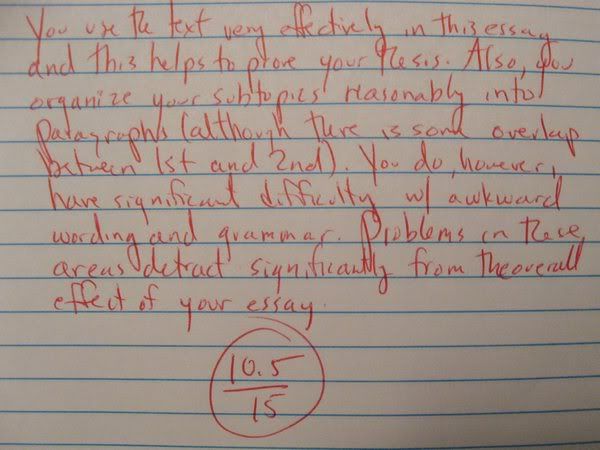 You use the text very effectively in this essay
and this helps to prove your thesis. Also, you
organize your subtopics reasonably into
paragraphs (although there is some overlap
between 1st and 2nd). You do, however,
have significant difficulty w/ awkward
wording and grammar. Problems in these
areas detract significantly from the overall
effect of your essay.
10.5
15